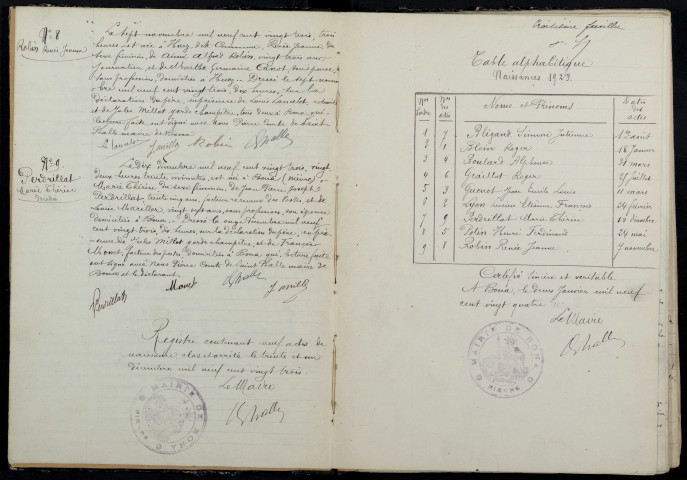 No 8
Robin Renée Jeanne
Le sept novembre mil neuf cent vingt trois, trois
heures est née à Huez, dite Commune, Renée Jeanne, du
sexe féminin, de Alfred Robin, vingt trois ans
journalier et de Marthe Germaine son épouse,
sans profession, domiciliés à Huez. Dressé le sept novem-
bre mil neuf cent vingt trois, dix heures, sur la
déclaration du père, en présence de Louis
et de Jules Millot garde champêtre, tous deux à Bona qui
lecture faite ont signé avec nous Pierre Comte de Saint
Halle maire de Bona
Robin
No 9
Perdrillat
Marie Thérèse
Le dix novembre mil neuf cent vingt trois, vingt
deux heures trente minutes, est née à Bona (Nièvre)
Marie Thérèse, du sexe féminin, de Jean Pierre Joseph
Perdrillat, trente cinq ans, facteur receveur des Postes, et de
Louise, vingt sept ans, sans profession, son épouse
domiciliés à Bona. Dressé le onze novembre mil neuf
cent vingt trois, dix heures, sur la déclaration du père, en pré-
sence de Jules Millot garde champêtre, et de François
Monet, facteur des postes, domiciliés à Bona, qui, lecture faite
ont signé avec nous Pierre Comte de Saint Halle maire de
Bona et le déclarant.
Perdrillat
Monet
Registre contenant neuf actes de
naissance clos et arrêté le trente et un
décembre mil neuf cent vingt trois.
Le Maire
MAIRIE DE BONA
NIÈVRE
feuillet
Table alphabétique
Naissances 1923
Nos d'ordre
Nos des actes
Noms et Prénoms
Dates des actes
1 7 Simone Julienne 1er août
2 1 Blein Roger 18 janvier
3 4 Boulard 30 mars
4 6 Graillot Roger 25 juillet
5 3 Guenot Jean Emile Louis 11 mars
6 2 Lyon Etienne François 24 février
7 9 Perdrillat Marie Thérèse
8 5 Potin Henri Ferdinand 24 mai
9 8 Robin Renée Jeanne 7 novembre
Certifié sincère et véritable
A Bona, le deux Janvier mil neuf
cent vingt quatre
Le Maire
MAIRIE DE BONA
NIÈVRE